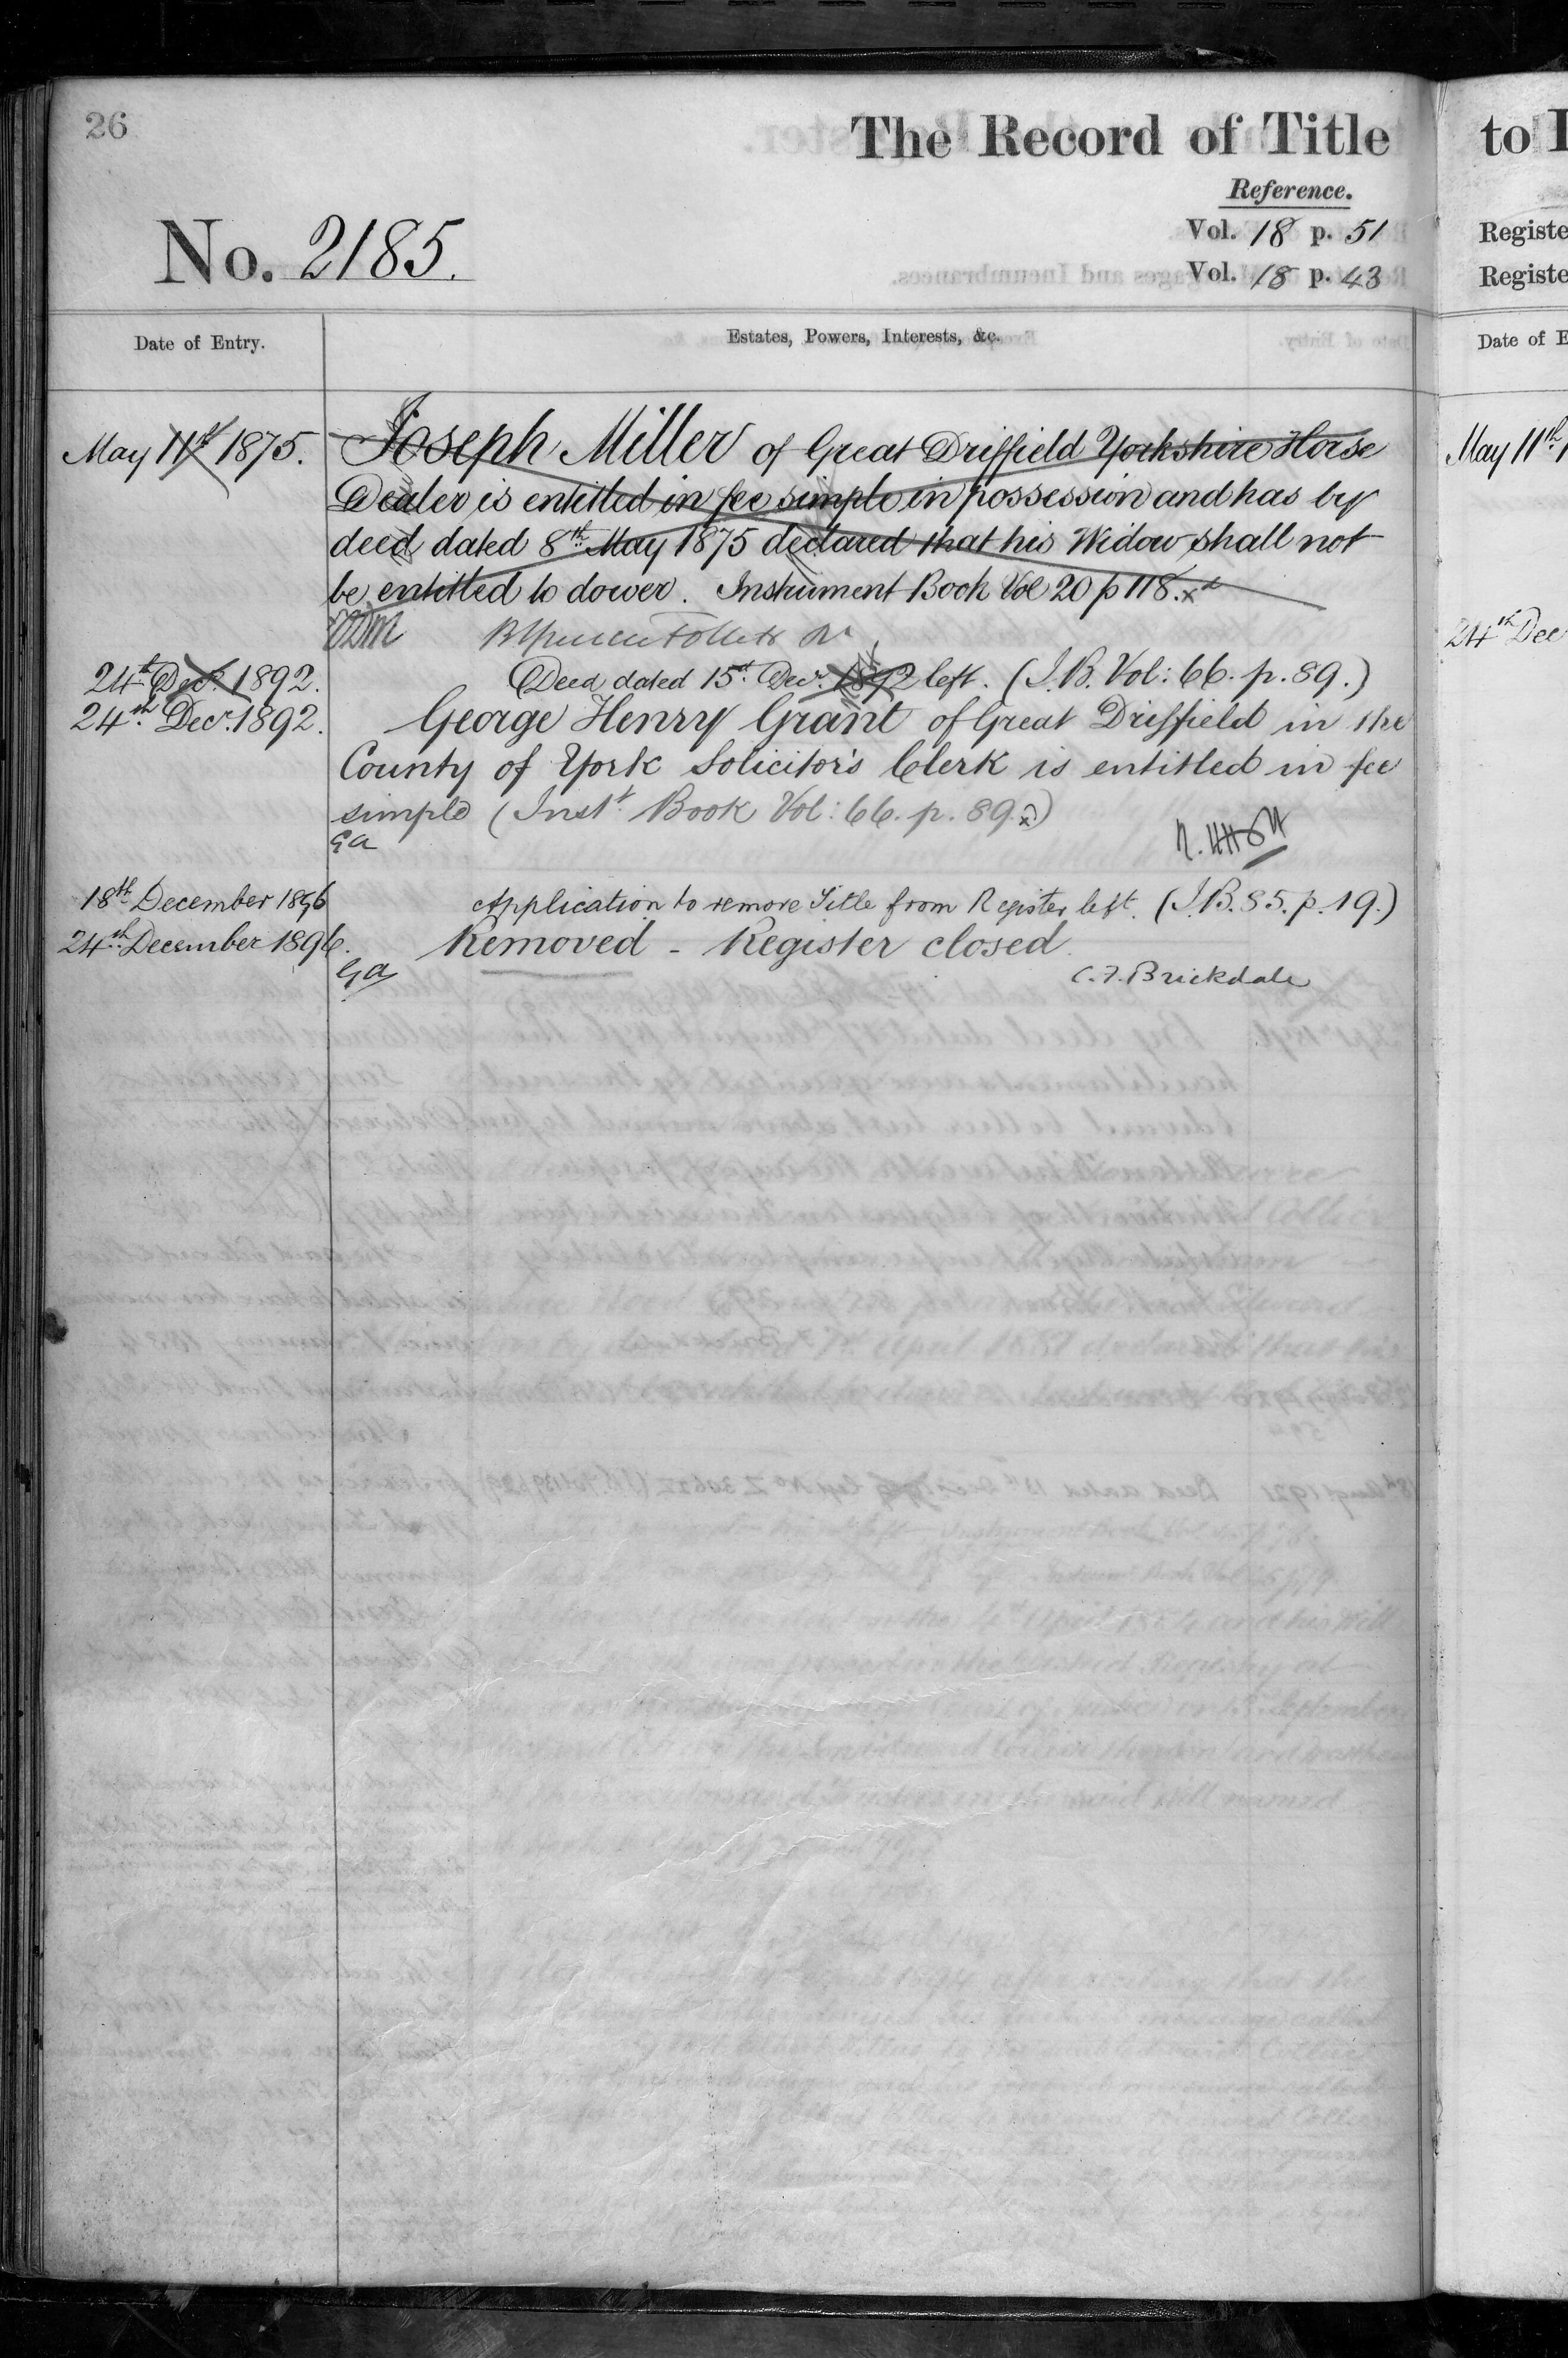 26
The Record of Title
Reference.
No. 2185.
Vol. 18 p. 51
Vol. 18 p. 43
Date of Entry.
Estates, Powers, Interests, &c.
May 11th 1875.
Joseph Miller of Great Driffield Yorkshire Horse
Dealer is entitled in fee simple in possession and has by
deed dated 8th May 1875 declared that his Widow shall not
be entitled to dower. Instrument Book Vol 20 p 118.
24th Decr. 1892.
Deed dated 15th Decr. 1892 left. (I.B. Vol: 66. p. 89.)
24th Decr. 1892.
George Henry Grant of Great Driffield in the
County of York Solicitor's Clerk is entitled in fee
simple (Instt. Book Vol: 66. p. 89.)
Ga
18th December 1896
Application to remove Title from Register left. (I.B. 85. p. 19.)
24th December 1896.
Removed - Register closed.
Ga
C. F. Brickdale
to
Registe
Registe
Date of E
May 11th
24th Dec